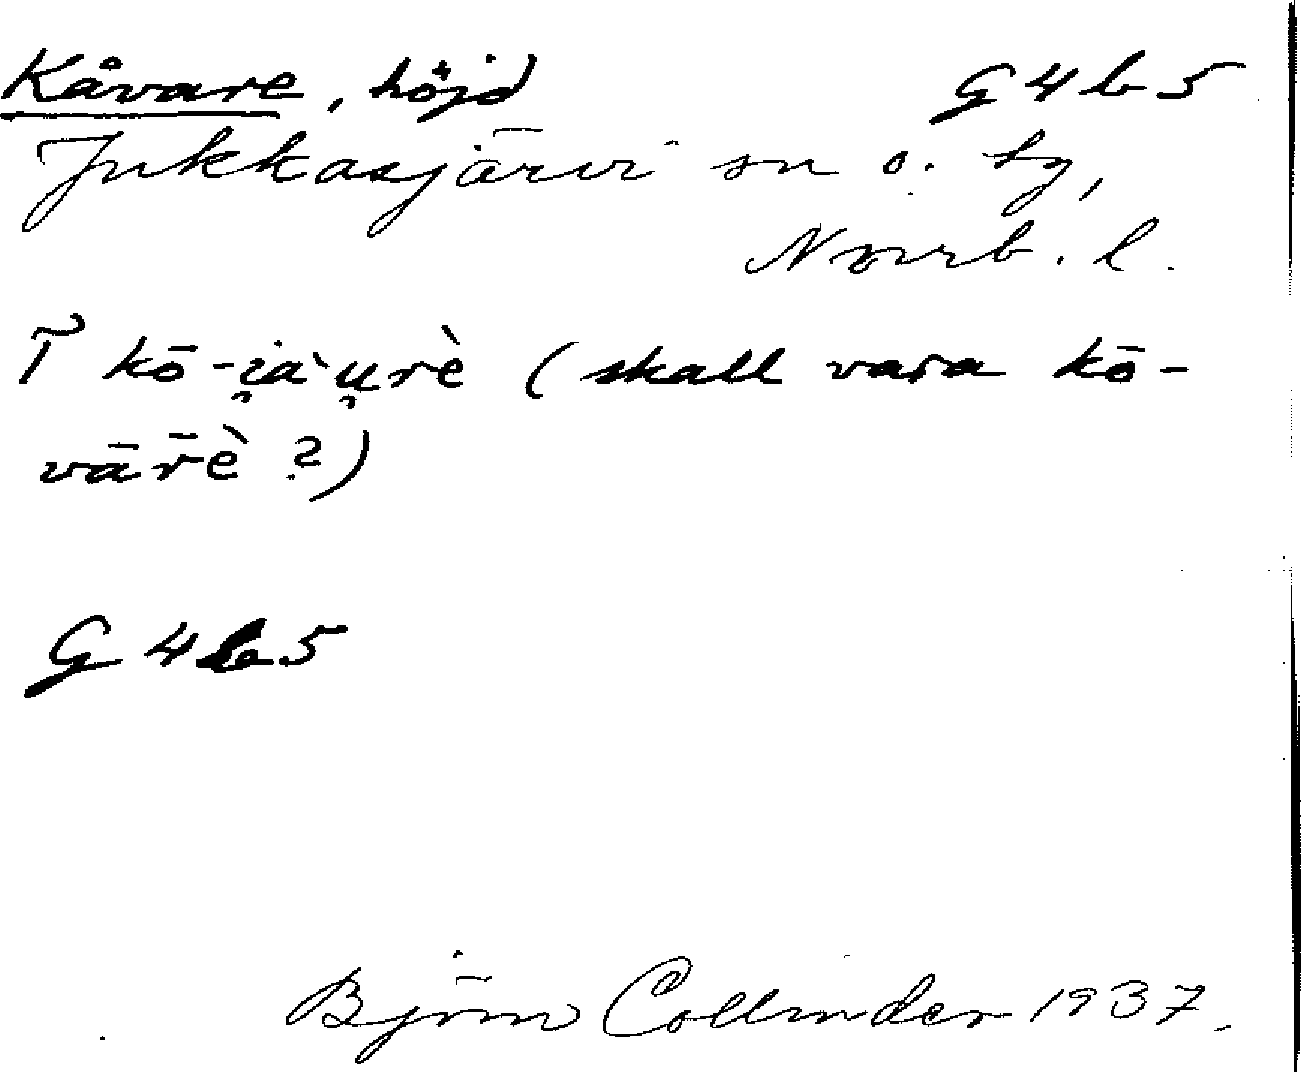 Kåvare, höjd G 4 b 5
Jukkasjärvi sn o. tg,
Norrb. l.
T̃ kō-i̯à u̯rè (skall vara kō-
vār̄è ?)
G 4 b 5
Björn Collinder 1937.